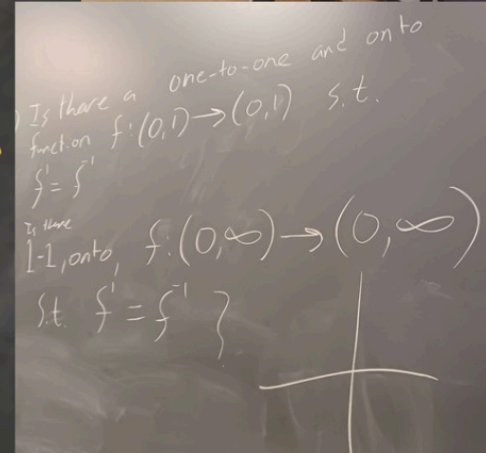 ) Is there a one-to-one and onto
function f:(0,1)→(0,1) s.t.
f'=f⁻¹
Is there
1-1, onto, f:(0,∞)→(0,∞)
s.t. f'=f⁻¹ ?